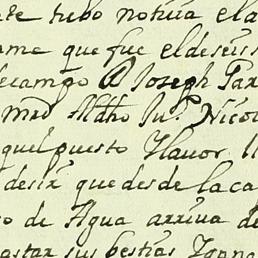 te tubo noticia el a
ame que fue el deseis
decampo A Joseph Pax
mad Matho Ju.º Nicol
quel puesto Y lauor
desir que desde la ca
o de Agua arriua de
astar sus bestias Y